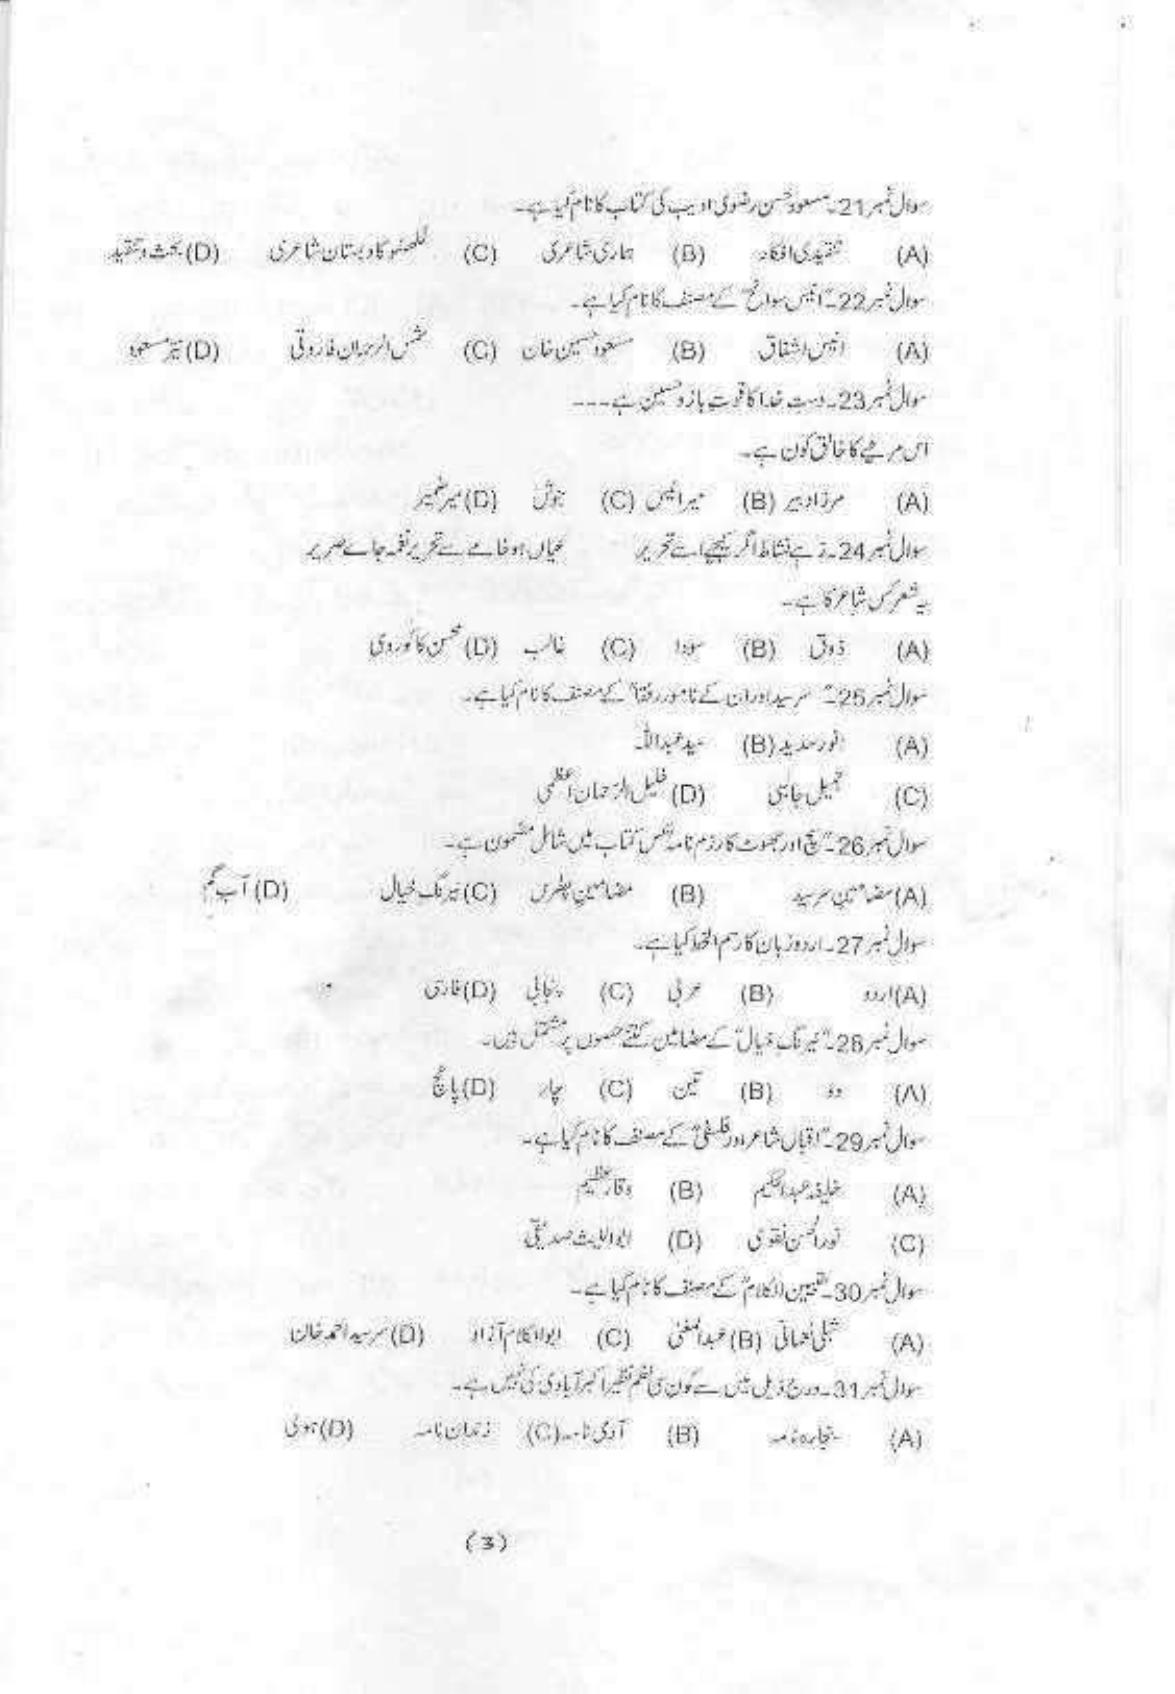 سوال نمبر 21۔ مسعود حسن رضوی ادیب کی کتاب کا نام کیا ہے۔
(A) تنقیدی افکار (B) ہماری شاعری (C) لکھنو کا دبستان شاعری (D) بحث و تنقید
سوال نمبر 22۔ "انیس سوانح" کے مصنف کا نام کیا ہے۔
(A) انیس اشفاق (B) مسعود حسین خان (C) شمس الرحمان فاروقی (D) نیر مسعود
سوال نمبر 23۔ دست خدا کا قوت بازو حسین ہے ---
اس مرثیے کا خالق کون ہے۔
(A) مرزا دبیر (B) میر انیس (C) جوش (D) میر ضمیر
سوال نمبر 24۔ زہے نشاط اگر کیجیے اسے تحریر عیاں ہو خامے سے تحریر نغمہ جاے صریر
یہ شعر کس شاعر کا ہے۔
(A) ذوق (B) سودا (C) غالب (D) محسن کاکوروی
سوال نمبر 25۔ "سر سید اور ان کے نامور رفقا" کے مصنف کا نام کیا ہے۔
(A) انور سدید (B) سید عبداللہ
(C) جمیل جالبی (D) خلیل الرحمان اعظمی
سوال نمبر 26۔ "سچ اور جھوٹ کا رزم نامہ" کس کتاب میں شامل مضمون ہے۔
(A) مضامین سرسید (B) مضامین پطرس (C) نیرنگ خیال (D) آب گم
سوال نمبر 27۔ اردو زبان کا رسم الخط کیا ہے۔
(A) اردو (B) عربی (C) پنجابی (D) فارسی
سوال نمبر 28۔ "نیرنگ خیال" کے مضامین کتنے حصوں پر مشتمل ہیں۔
(A) دو (B) تین (C) چار (D) پانچ
سوال نمبر 29۔ "اقبال شاعر اور فلسفی" کے مصنف کا نام کیا ہے۔
(A) خلیفہ عبدالحکیم (B) وقار عظیم
(C) نورالحسن نقوی (D) ابواللیث صدیقی
سوال نمبر 30۔ "تبیین الکلام" کے مصنف کا نام کیا ہے۔
(A) شبلی نعمانی (B) عبدالمغنی (C) ابوالکلام آزاد (D) سر سید احمد خان
سوال نمبر 31۔ درج ذیل میں سے کون سی نظم نظیر اکبر آبادی کی نہیں ہے۔
(A) بنجارہ نامہ (B) آدمی نامہ (C) زندان نامہ (D) ہولی
(3)